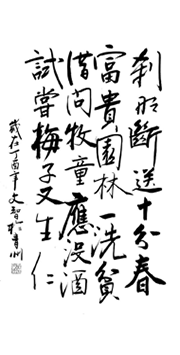 刹那斷送十分春
富貴園林一洗貧
借問牧童應没酒
試嘗梅子又生仁
歲在丁酉年文智於青州